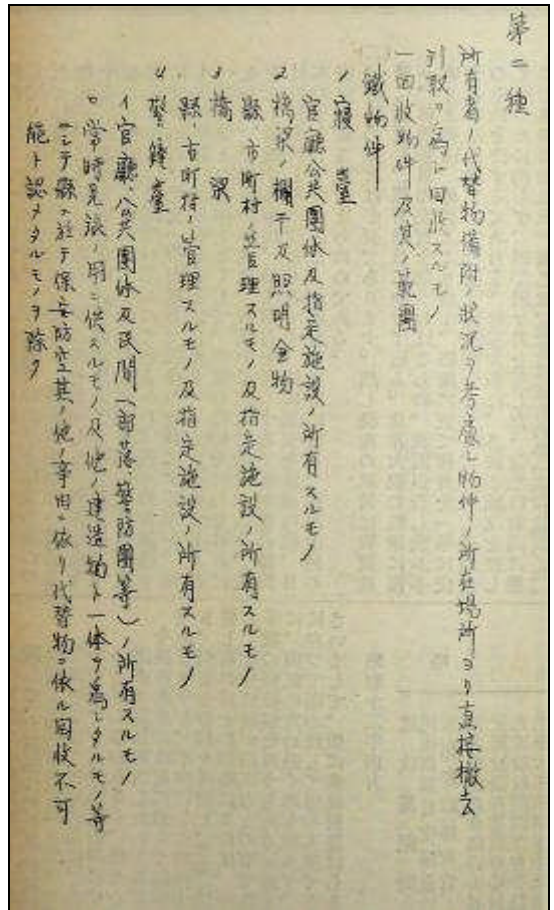 第二種
所有者ノ代替物備附状況ヲ考慮シ物件ノ所在場所ヨリ直接撤去
引取ノ為ニ回収スルモノ
一回収物件及其ノ範囲
鐵物件
1 寝臺
官廳公共團体及指定施設ノ所有スルモノ
2 橋梁ノ欄干及照明金物
縣、市町村ノ管理スルモノ及指定施設ノ所有スルモノ
3 橋梁
縣、市町村ノ管理スルモノ及指定施設ノ所有スルモノ
4 警鐘臺
イ官廳公共團体及民間(部落、警防團等)ノ所有スルモノ
ロ常時見張ノ用ニ供スルモノ及他ノ建造物ト一体ヲ為シタルモノ等
ニシテ縣ニ於テ保安防空其ノ他ノ事由ニ依リ代替物ニ依ル回收不可
能ト認メタルモノヲ除ク